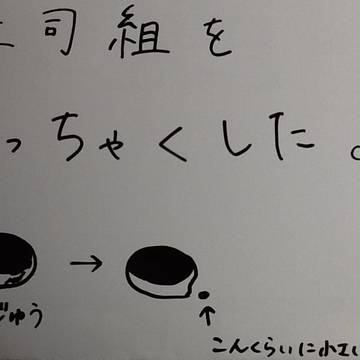 司組を
っちゃくした。
じゅう
→
↑
こんくらいに小エい